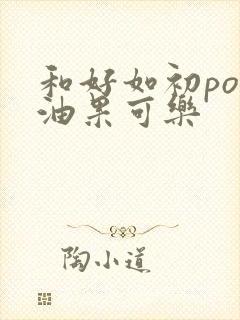 和好如初po
油果可樂
陶小道